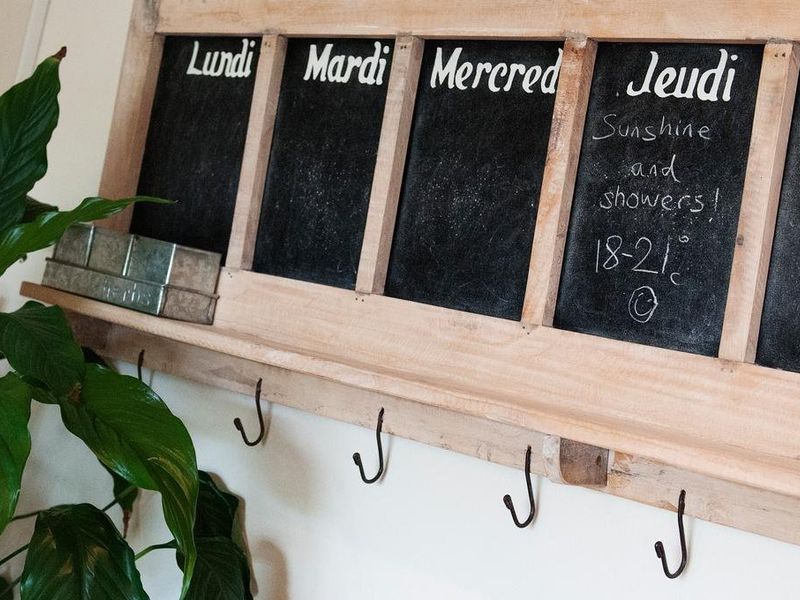 Lundi
Mardi
Mercred
Jeudi
Sunshine
and
showers!
18-21°c